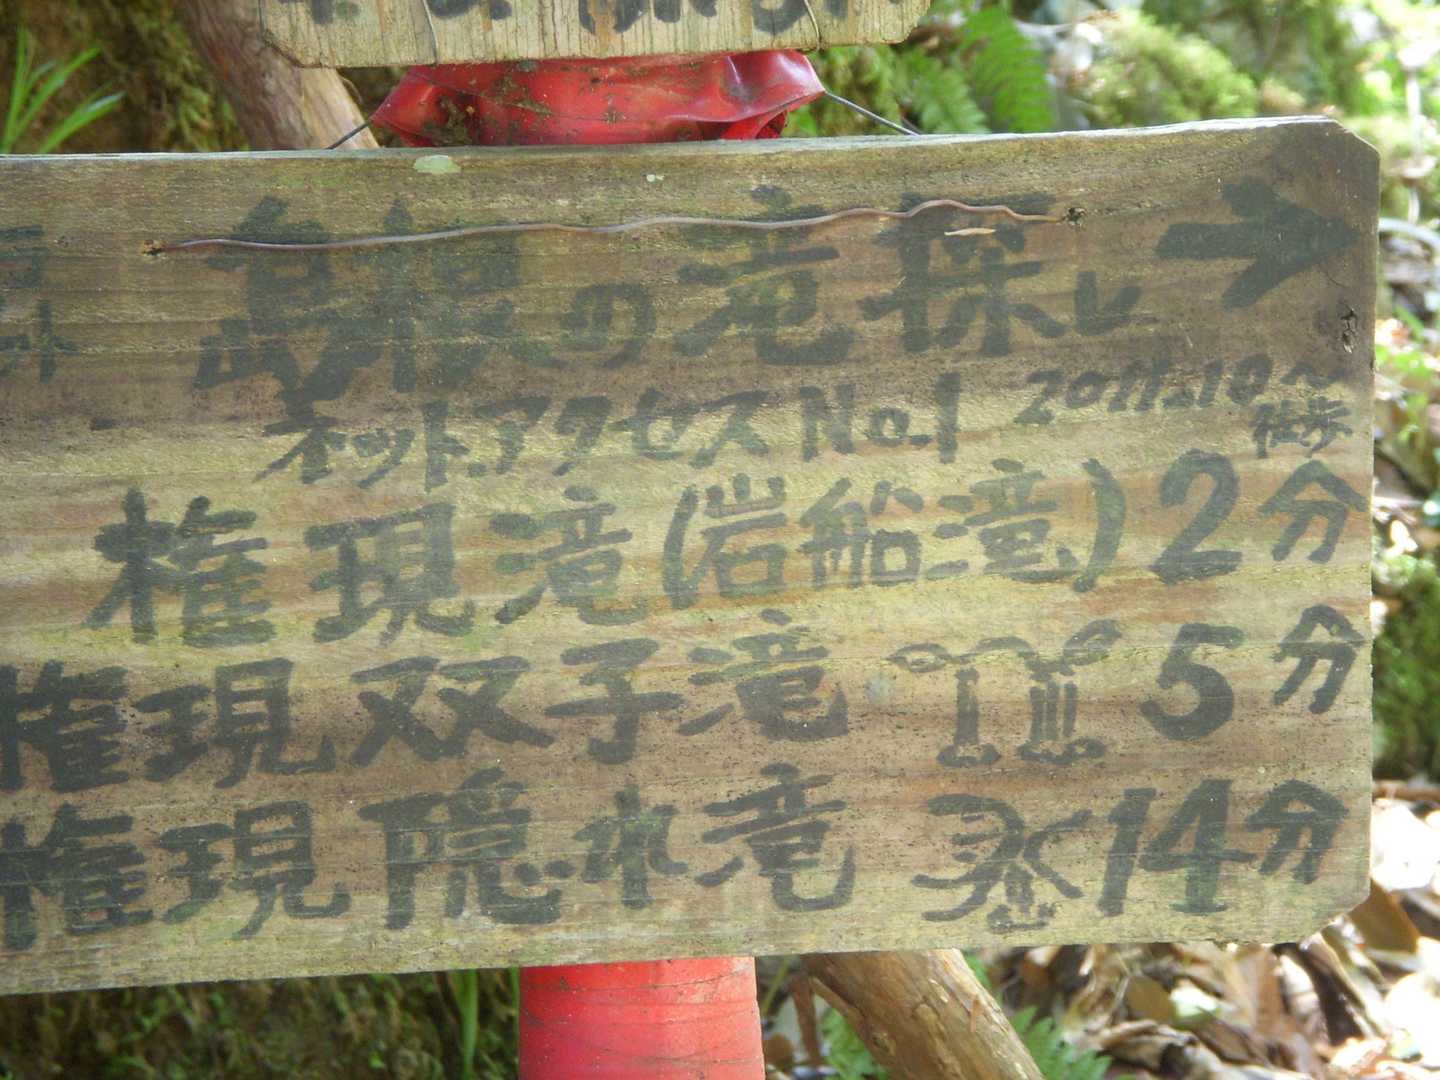 島根の滝探し →
ネット.アクセス No.1 2011.10~
徒歩
権現滝(岩船滝) 2分
権現双子滝 5分
権現隠れ滝 14分